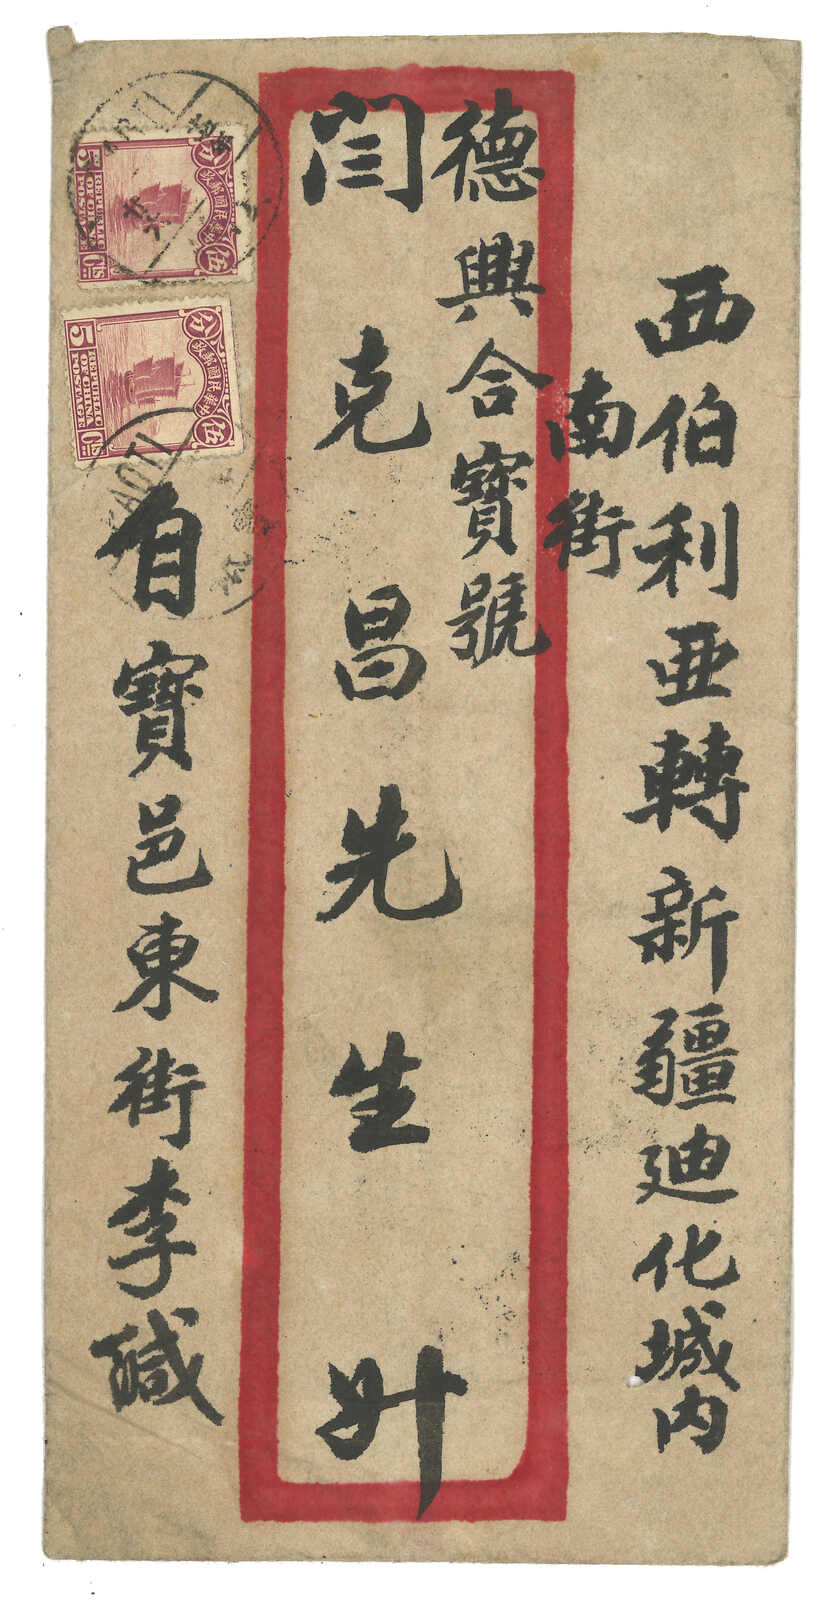 西伯利亚轉新疆迪化城內
南街
德興合寶號
闫克昌先生升
自寶邑東街李緘
分 中華民國郵政 伍
5 REPUBLIC OF CHINA POSTAGE Cts
分 中華民國郵政 伍
5 REPUBLIC OF CHINA POSTAGE Cts